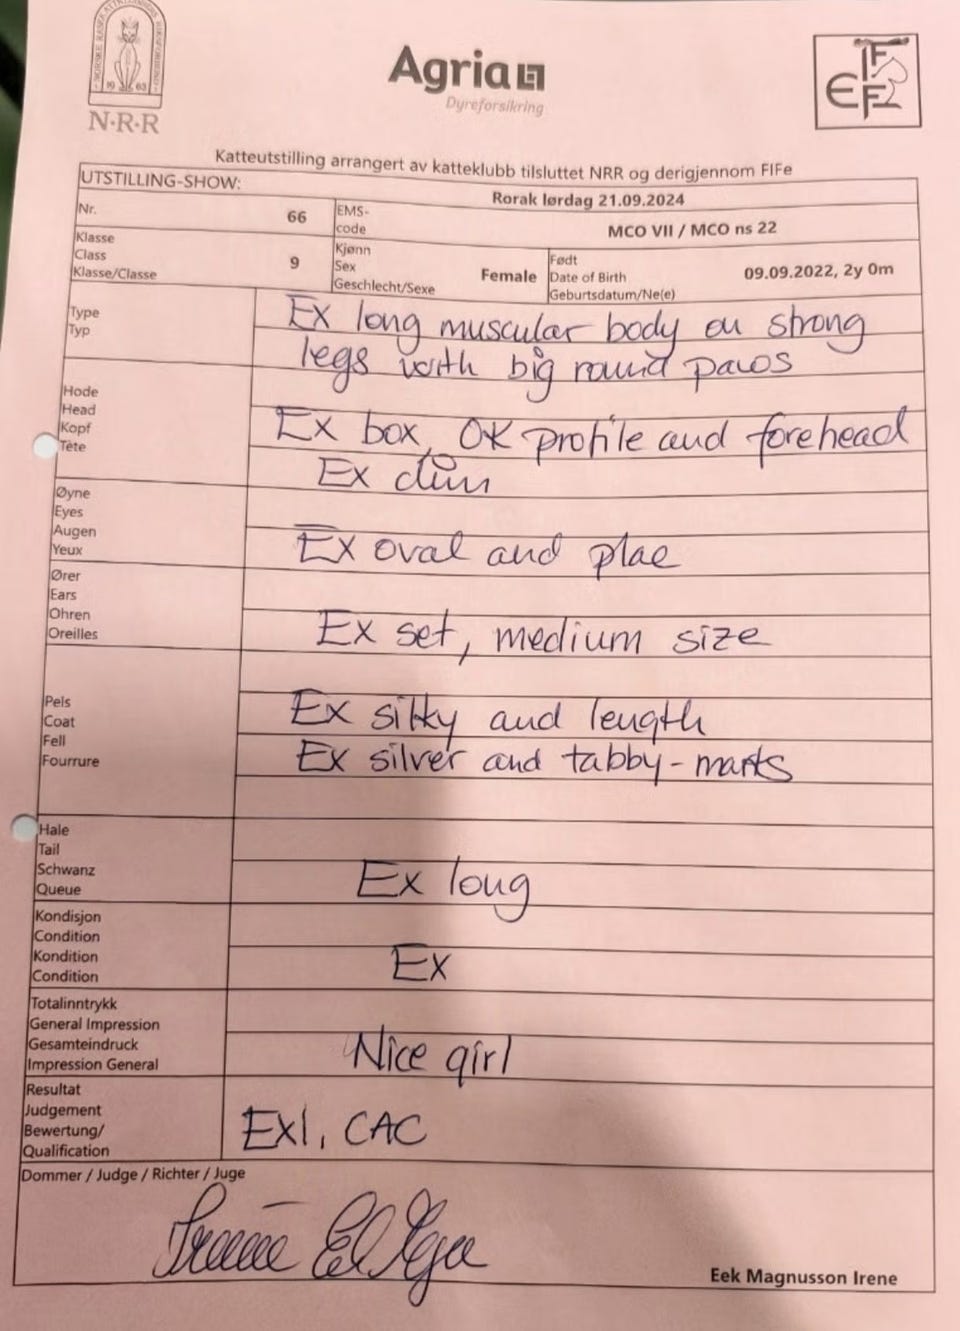 NORSKE RASEKATTKLUBBERS RIKSFORBUND
19 63
N·R·R
Agria
Dyreforsikring
FIFe
Katteutstilling arrangert av katteklubb tilsluttet NRR og derigjennom FIFe
UTSTILLING-SHOW:
Rorak lørdag 21.09.2024
Nr.
66
EMS-
code
MCO VII / MCO ns 22
Klasse
Class
Klasse/Classe
9
Kjønn
Sex
Geschlecht/Sexe
Female
Født
Date of Birth
Geburtsdatum/Ne(e)
09.09.2022, 2y 0m
Type
Typ
Ex long muscular body on strong
legs with big round paws
Hode
Head
Kopf
Tète
Ex box, OK profile and forehead
Ex chin
Øyne
Eyes
Augen
Yeux
Ex oval and plae
Ører
Ears
Ohren
Oreilles
Ex set, medium size
Pels
Coat
Fell
Fourrure
Ex silky and length
Ex silver and tabby-marks
Hale
Tail
Schwanz
Queue
Ex long
Kondisjon
Condition
Kondition
Condition
Ex
Totalinntrykk
General Impression
Gesamteindruck
Impression General
Nice girl
Resultat
Judgement
Bewertung/
Qualification
Ex1, CAC
Dommer / Judge / Richter / Juge
Eek Magnusson Irene